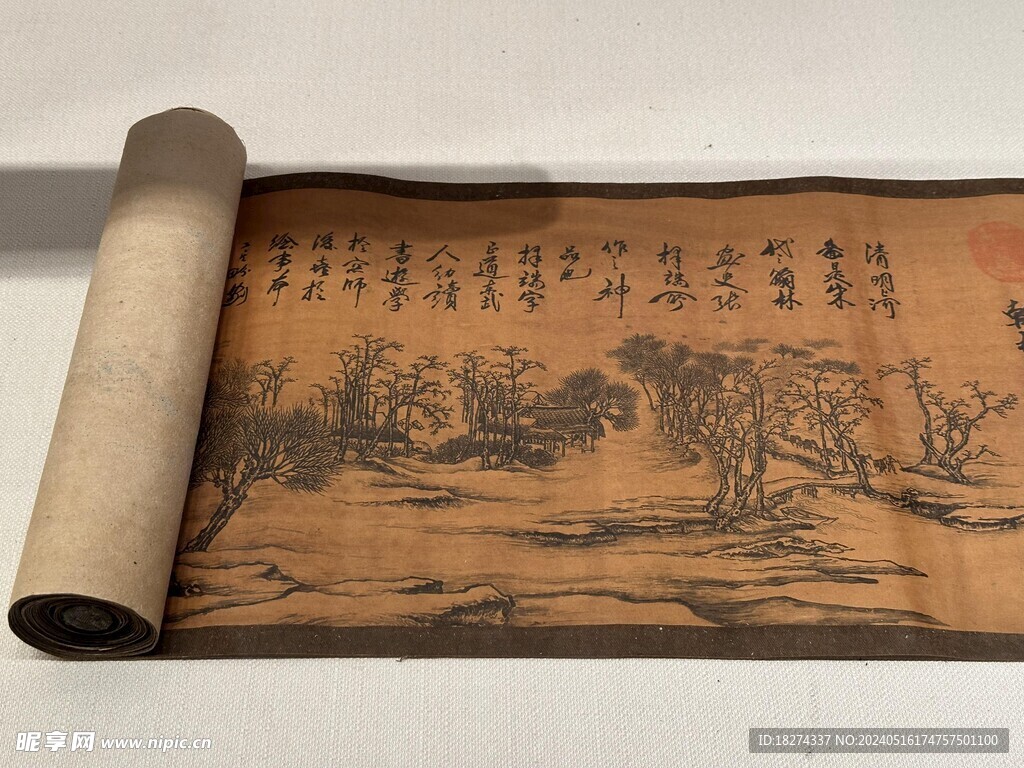 清明河
是宋
代翰林
畫史張
擇端所
作之神
品也
擇端字
正道東武
人幼讀
書遊學
於京師
後嗜於
繪事本
昵享网 www.nipic.cn
ID:18274337 NO:20240516174757501100